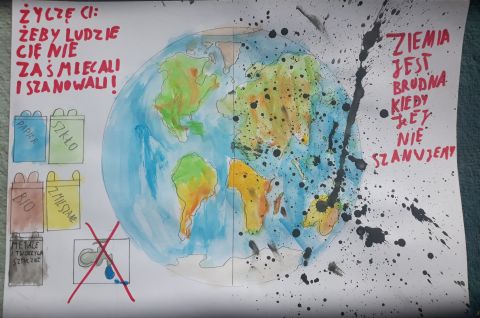 ŻYCZĘ CI:
ŻEBY LUDZIE
CIĘ NIE
ZAŚMIECALI
I SZANOWALI!
ZIEMIA
JEST
BRUDNA
KIEDY
JEJ
NIE
SZANUJEMY
PAPIER
SZKŁO
BIO
ZMIESZANE
METALE
I TWORZYWA
SZTUCZNE